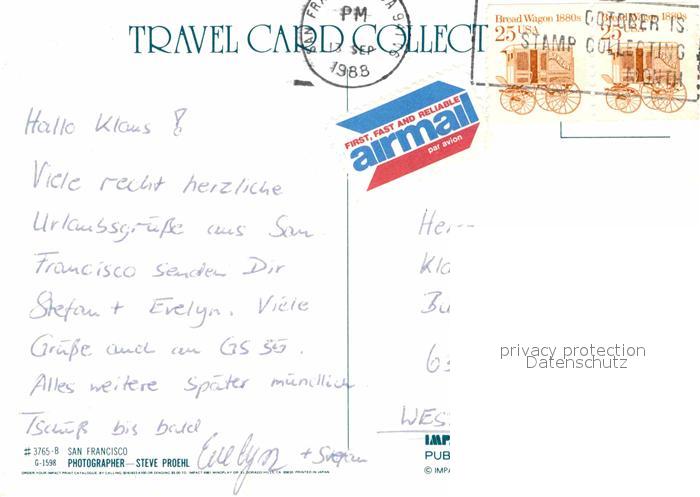 TRAVEL CARD COLLECT
SAN FRA
PM
13 SEP
1988
Bread Wagon 1880s
25 USA
Bread Wagon 1880s
25
OCTOBER IS
STAMP COLLECTING
MONTH
FIRST, FAST AND RELIABLE
airmail
par avion
Hallo Klaus !
Viele recht herzliche
Urlaubsgrüße aus San
Francisco senden Dir
Stefan + Evelyn. Viele
Grüße auch an GS 55.
Alles weitere später mündlich
Tschüß bis bald
Evelyn + Stefan
Herr
Kla
Bu
WES
privacy protection
Datenschutz
# 3765-B SAN FRANCISCO
G-1598 PHOTOGRAPHER—STEVE PROEHL
IMP
PUB
© IMPA